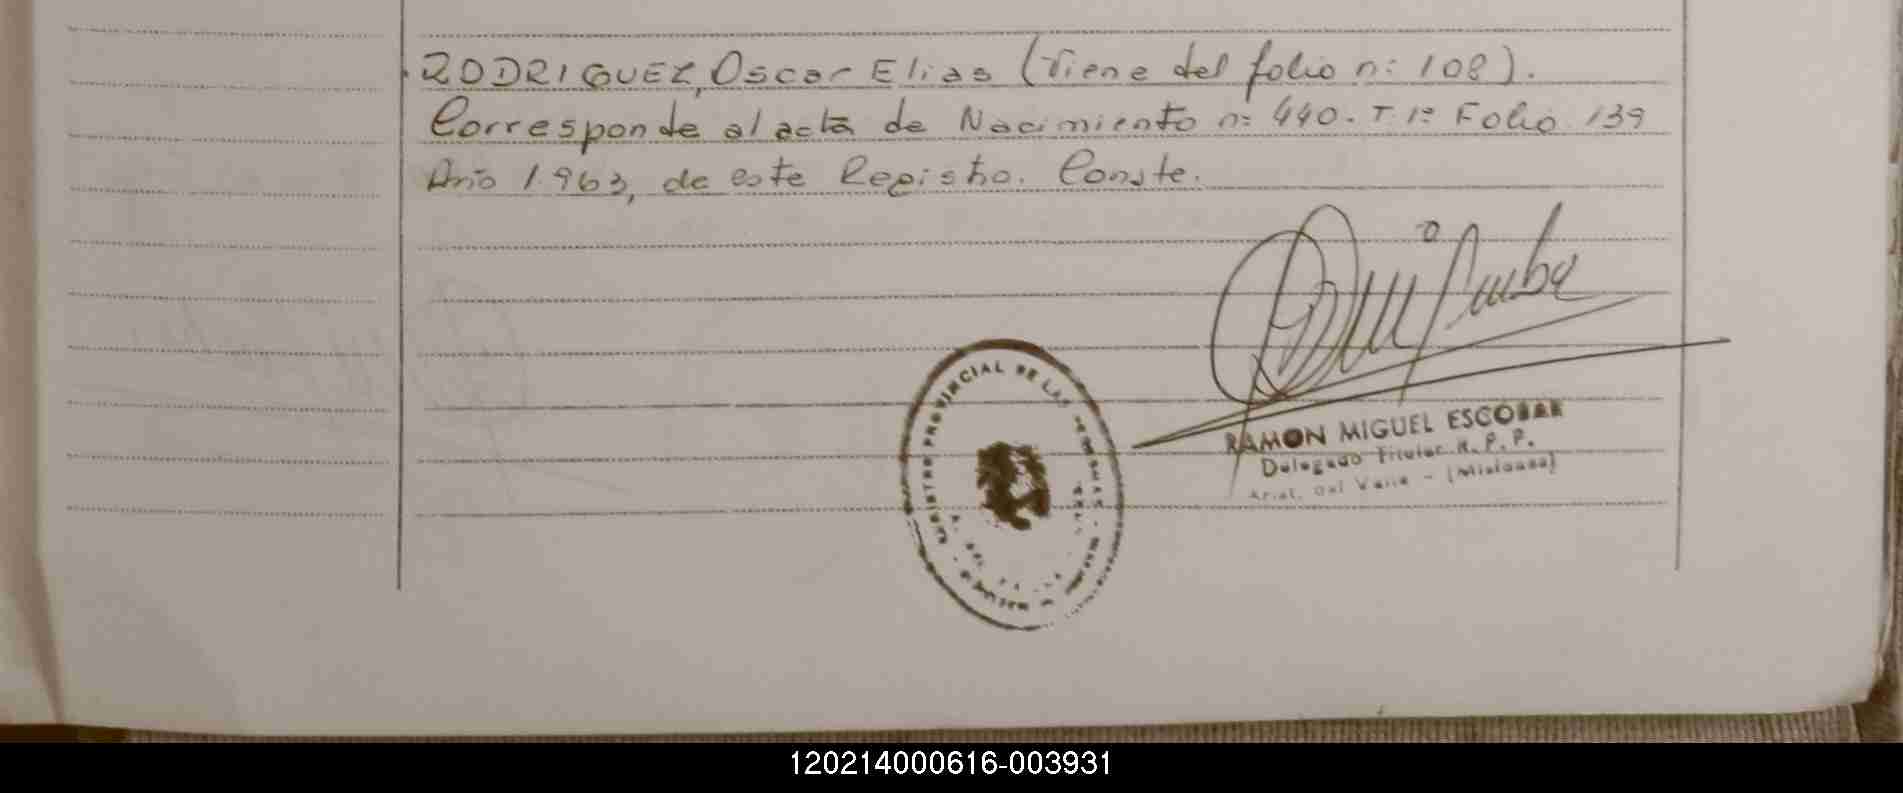 RODRIGUEZ, Oscar Elias (Viene del folio n: 108).
Corresponde al acta de Nacimiento n: 440. T. 1º Folio 139
Año 1.963, de este Registro. Conste.
REGISTRO PROVINCIAL DE LAS PERSONAS
RAMON MIGUEL ESCOBAR
Delegado Titular R. P. P.
Arist. Del Valle - (Misiones)
120214000616-003931